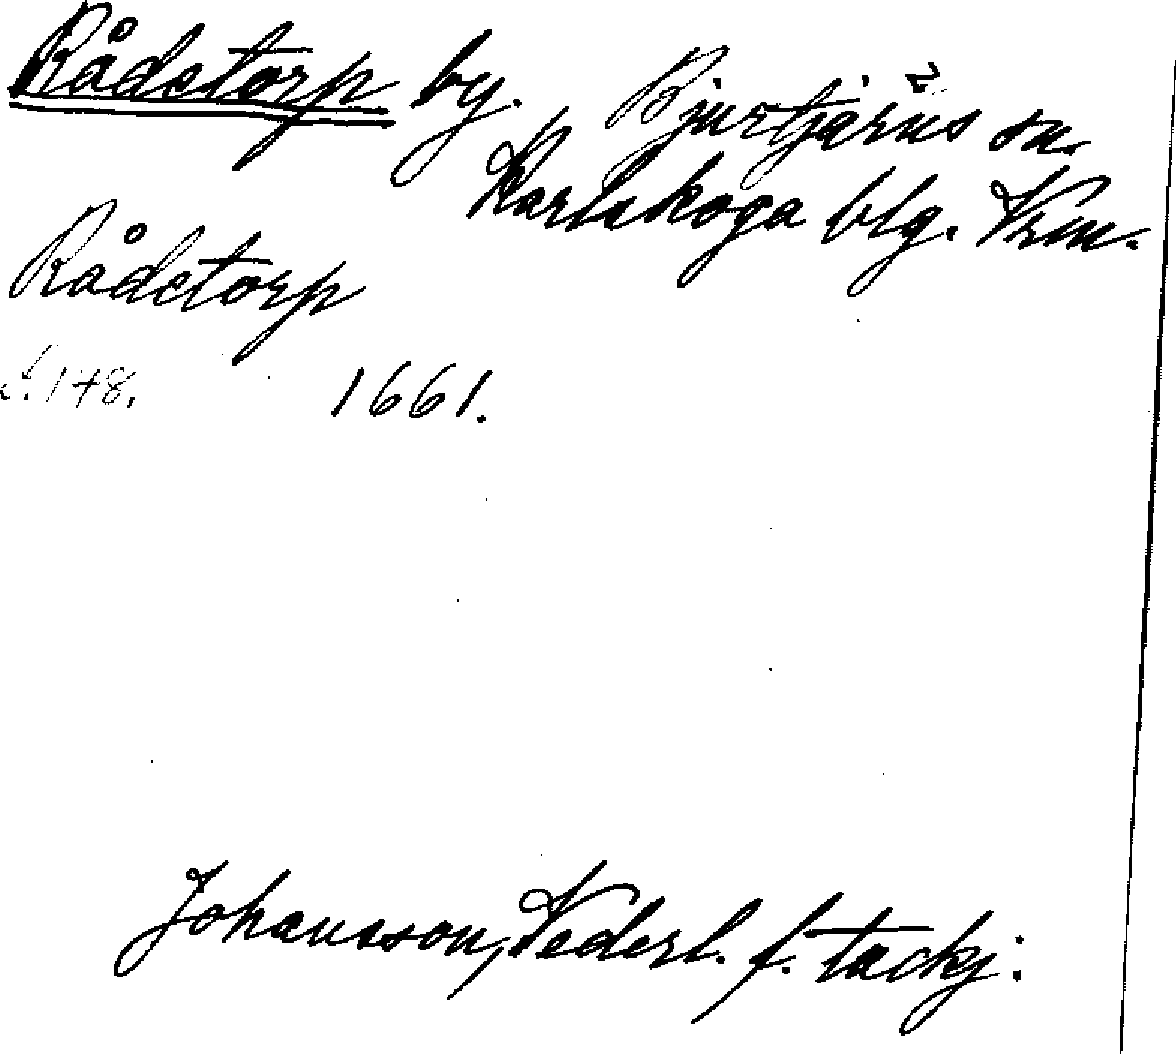 Rådetorp by. Bjurtjärns sn.
Karlskoga blg. Vrm.
Rådetorp
s. 148. 1661.
Johansson, Vederl. f. tackj: